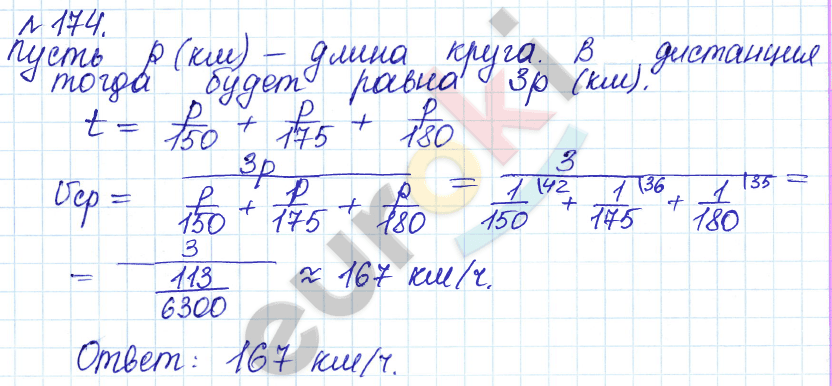 № 174.
Пусть p (км) – длина круга. В дистанция
тогда будет равна 3p (км).
t = p/150 + p/175 + p/180
Vср = 3p / (p/150 + p/175 + p/180) = 3 / (1/150 \42 + 1/175 \36 + 1/180 \35) =
= 3 / (113/6300) ≈ 167 км/ч.
Ответ: 167 км/ч.
euroki